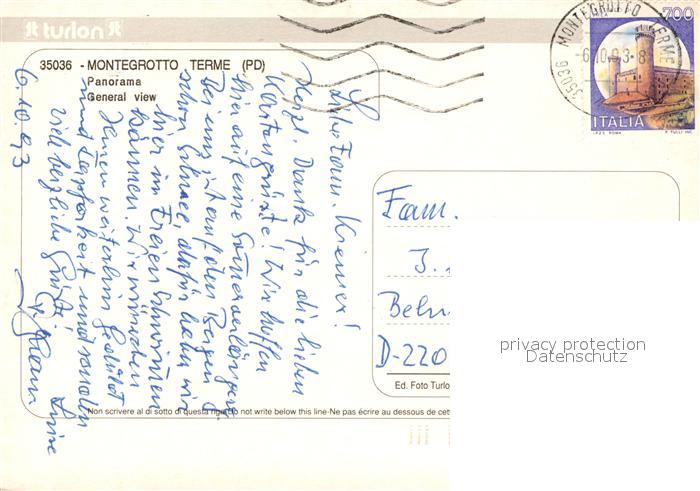 turlon
700
35036 MONTEGROTTO TERME
-6.10.93-8
ITALIA
I.P.Z.S. ROMA
35036 - MONTEGROTTO TERME (PD)
Panorama
General view
6.10.93
Liebe Famm. Kremer!
Herzl. Dank für die lieben
Kartengrüsse! Wir hoffen
hier auf eine Sommerverlängerg.
Bei uns ist auf den Bergen
schon Schnee, dafür haben wir
hier im Freien schwimmen
können. Wir wünschen
Ihnen weiterhin Geduld
und Tapferkeit und senden
viele herzliche Grüße!
Fam.
J.
D-220
privacy protection
Datenschutz
Ed. Foto Turlo
Non scrivere al di sotto di questa riga-Do not write below this line-Ne pas écrire au dessous de cett